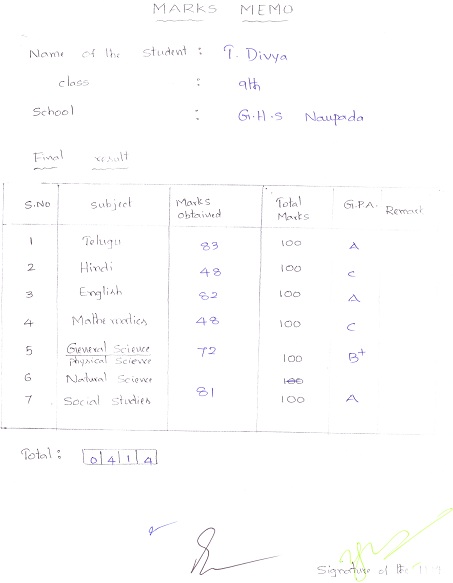 MARKS MEMO
Name of the Student : T. Divya
class : 9th
School : G.H.S Naupada
Final result
S.No Subject Marks obtained Total Marks G.P.A. Remark
1 Telugu 83 100 A
2 Hindi 48 100 C
3 English 82 100 A
4 Mathematics 48 100 C
5 General Science/Physical Science 72 100 B+
6 Natural Science 100
7 Social Studies 81 100 A
Total : 0414
Signature of the